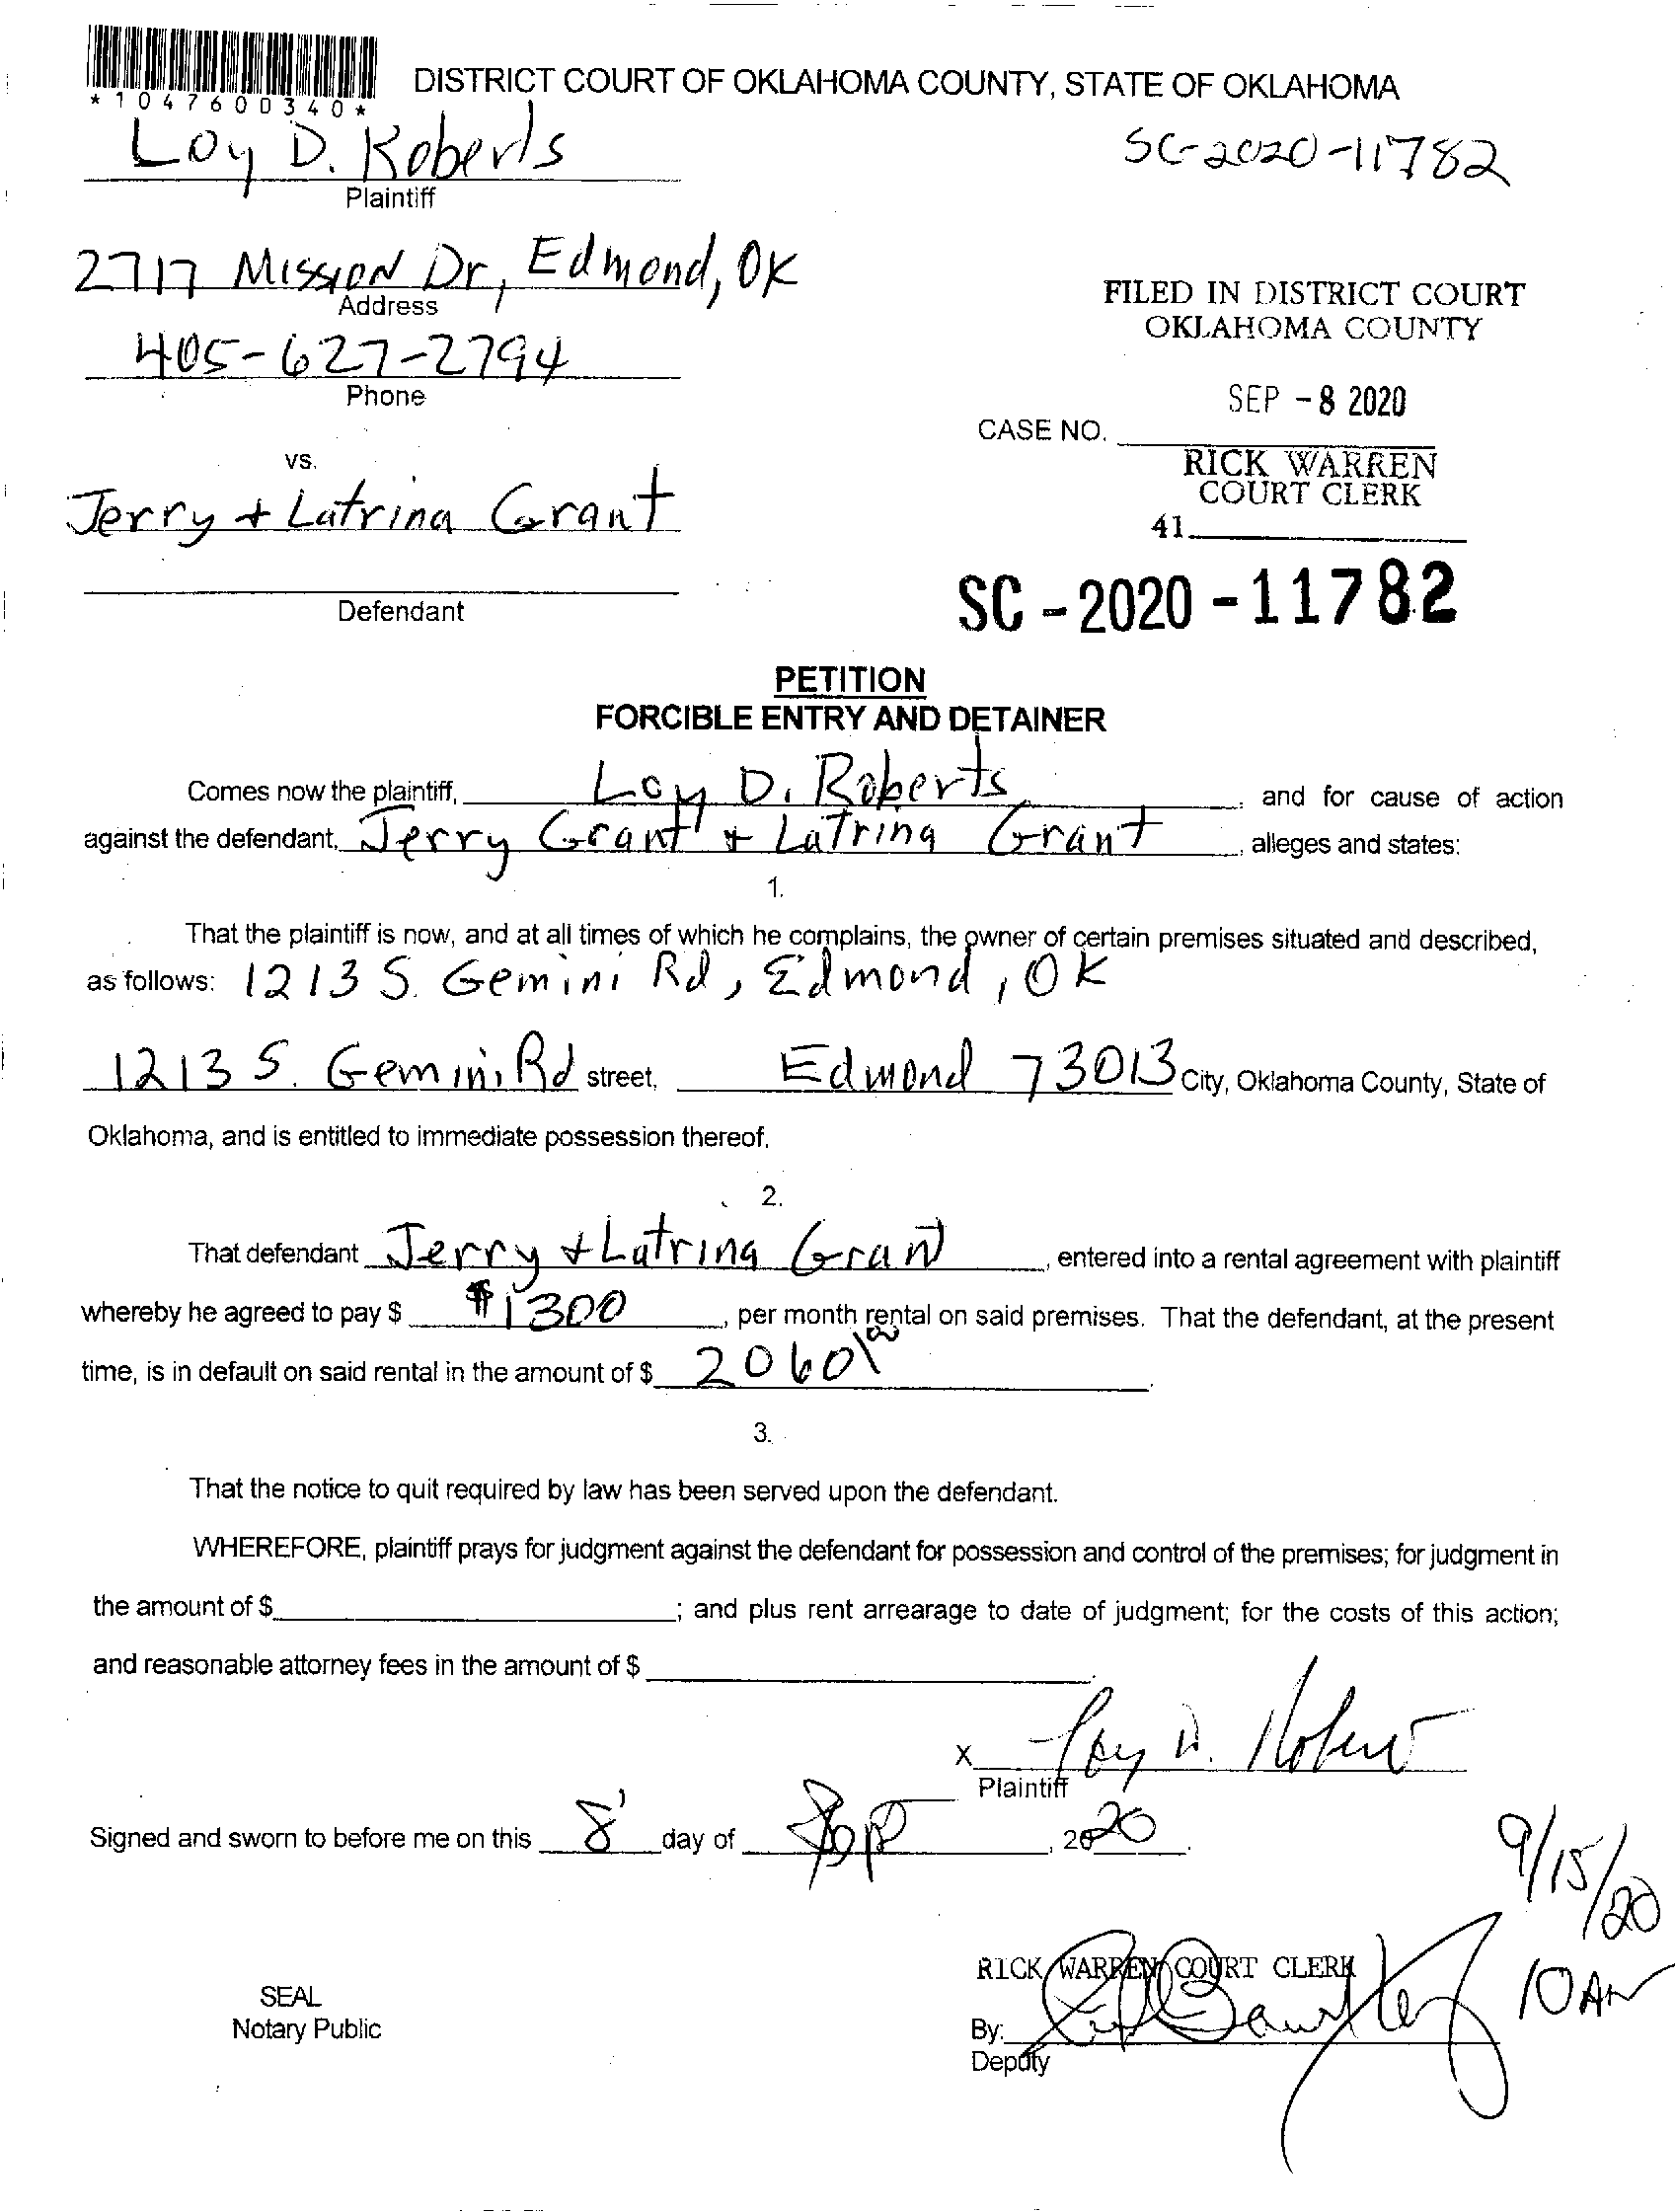 *1047600340*
DISTRICT COURT OF OKLAHOMA COUNTY, STATE OF OKLAHOMA
Loy D. Roberts
SC-2020-11782
Plaintiff
2717 Mission Dr, Edmond, OK
Address
FILED IN DISTRICT COURT
OKLAHOMA COUNTY
405-627-2794
Phone
SEP -8 2020
CASE NO.
RICK WARREN
COURT CLERK
vs.
Jerry + Latrina Grant
41
Defendant
SC-2020-11782
PETITION
FORCIBLE ENTRY AND DETAINER
Comes now the plaintiff, Loy D. Roberts, and for cause of action
against the defendant, Jerry Grant + Latrina Grant, alleges and states:
1.
That the plaintiff is now, and at all times of which he complains, the owner of certain premises situated and described,
as follows: 1213 S. Gemini Rd, Edmond, OK
1213 S. Gemini Rd street, Edmond 73013 City, Oklahoma County, State of
Oklahoma, and is entitled to immediate possession thereof.
2.
That defendant Jerry + Latrina Grant, entered into a rental agreement with plaintiff
whereby he agreed to pay $ $1300, per month rental on said premises. That the defendant, at the present
time, is in default on said rental in the amount of $
3.
That the notice to quit required by law has been served upon the defendant.
WHEREFORE, plaintiff prays for judgment against the defendant for possession and control of the premises; for judgment in
the amount of $ ; and plus rent arrearage to date of judgment; for the costs of this action;
and reasonable attorney fees in the amount of $
X Loy D. Roberts
Plaintiff
Signed and sworn to before me on this 8 day of Sept, 2020.
9/15/20
10 AM
RICK WARREN COURT CLERK
SEAL
Notary Public
By:
Deputy